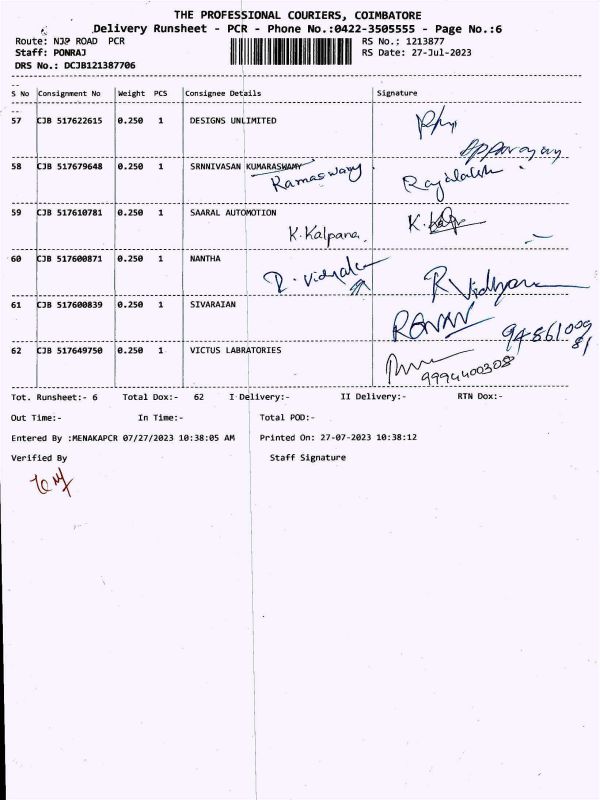 THE PROFESSIONAL COURIERS, COIMBATORE
Delivery Runsheet - PCR - Phone No.:0422-3505555 - Page No.:6
Route: NJP ROAD PCR RS No.: 1213877
Staff: PONRAJ RS Date: 27-Jul-2023
DRS No.: DCJB121387706
S No Consignment No Weight PCS Consignee Details Signature
57 CJB 517622615 0.250 1 DESIGNS UNLIMITED
58 CJB 517679648 0.250 1 SRNNIVASAN KUMARASWAMY
Ramaswamy Rajalaksh
59 CJB 517610781 0.250 1 SAARAL AUTOMOTION
K.Kalpana. K.Kalp
60 CJB 517600871 0.250 1 NANTHA
R. Vidhya
61 CJB 517600839 0.250 1 SIVARAIAN
62 CJB 517649750 0.250 1 VICTUS LABRATORIES
9994400308
Tot. Runsheet:- 6 Total Dox:- 62 I Delivery:- II Delivery:- RTN Dox:-
Out Time:- In Time:- Total POD:-
Entered By :MENAKAPCR 07/27/2023 10:38:05 AM Printed On: 27-07-2023 10:38:12
Verified By Staff Signature